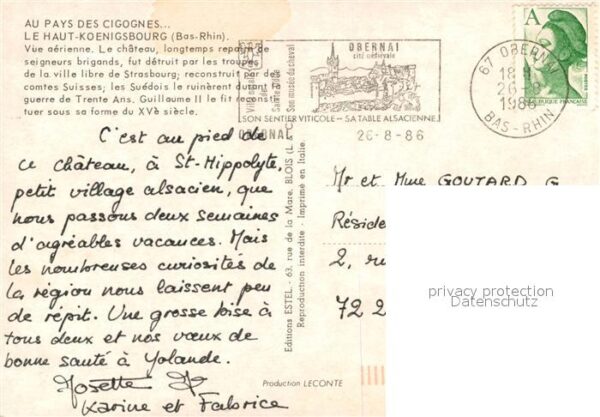 AU PAYS DES CIGOGNES...
LE HAUT-KOENIGSBOURG (Bas-Rhin).
Vüe aérienne. Le château, longtemps repaire de
seigneurs brigands, fut détruit par les troupes
de la ville libre de Strasbourg; reconstruit par des
comtes Suisses; les Suédois le ruinèrent durant la
guerre de Trente Ans. Guillaume II le fit recons-
tuer sous sa forme du XVè siècle.
C'est au pied de
ce château, à St-Hippolyte,
petit village alsacien, que
nous passons deux semaines
d'agréables vacances. Mais
les nombreuses curiosités de
la région nous laissent peu
de répit. Une grosse bise à
tous deux et nos vœux de
bonne santé à Yolande.
Josette
Karine et Fabrice
OBERNAI
cité médiévale
Son musée du cheval
SON SENTIER VITICOLE - SA TABLE ALSACIENNE
OBERNAI
26-8-86
67 OBERNAI
18 H
26-8
1986
BAS-RHIN
A
REPUBLIQUE FRANCAISE
Editions ESTEL - 63, rue de la Mare, BLOIS (L. & C.)
Reproduction interdite - Imprimé en Italie.
Mr et Mme GOUTARD G
Réside
2, ru
72 2
privacy protection
Datenschutz
Production LECONTE